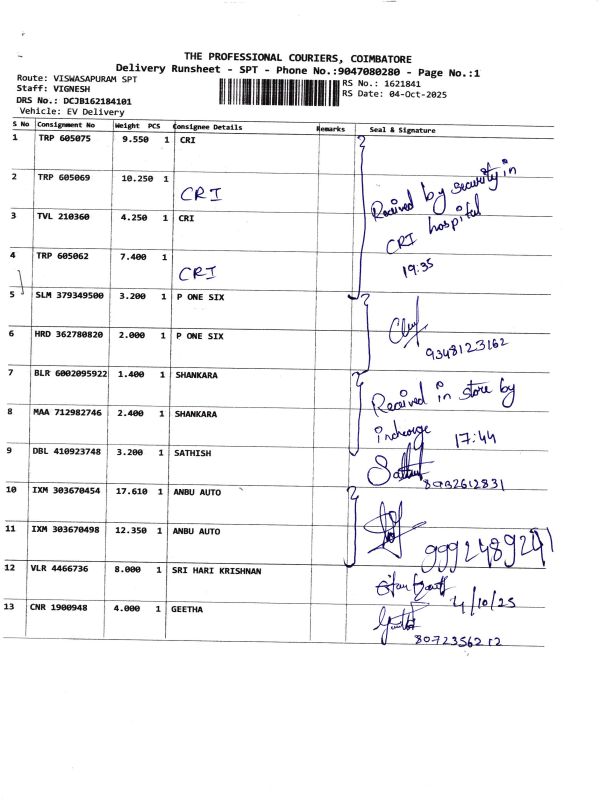 THE PROFESSIONAL COURIERS, COIMBATORE
Delivery Runsheet - SPT - Phone No.:9047080280 - Page No.:1
Route: VISWASAPURAM SPT
Staff: VIGNESH
DRS No.: DCJB162184101
Vehicle: EV Delivery
RS No.: 1621841
RS Date: 04-Oct-2025
S No Consignment No Weight PCS Consignee Details Remarks Seal & Signature
1 TRP 605075 9.550 1 CRI
2 TRP 605069 10.250 1 CRI
3 TVL 210360 4.250 1 CRI
4 TRP 605062 7.400 1 CRI
Received by security in
CRI hospital
19:35
5 SLM 379349500 3.200 1 P ONE SIX
6 HRD 362780820 2.000 1 P ONE SIX
9348123162
7 BLR 6002095922 1.400 1 SHANKARA
8 MAA 712982746 2.400 1 SHANKARA
Received in store by
incharge 17:44
9 DBL 410923748 3.200 1 SATHISH
8932612831
10 IXM 303670454 17.610 1 ANBU AUTO
11 IXM 303670498 12.350 1 ANBU AUTO
9992489241
12 VLR 4466736 8.000 1 SRI HARI KRISHNAN
4/10/25
13 CNR 1900948 4.000 1 GEETHA
8072356212